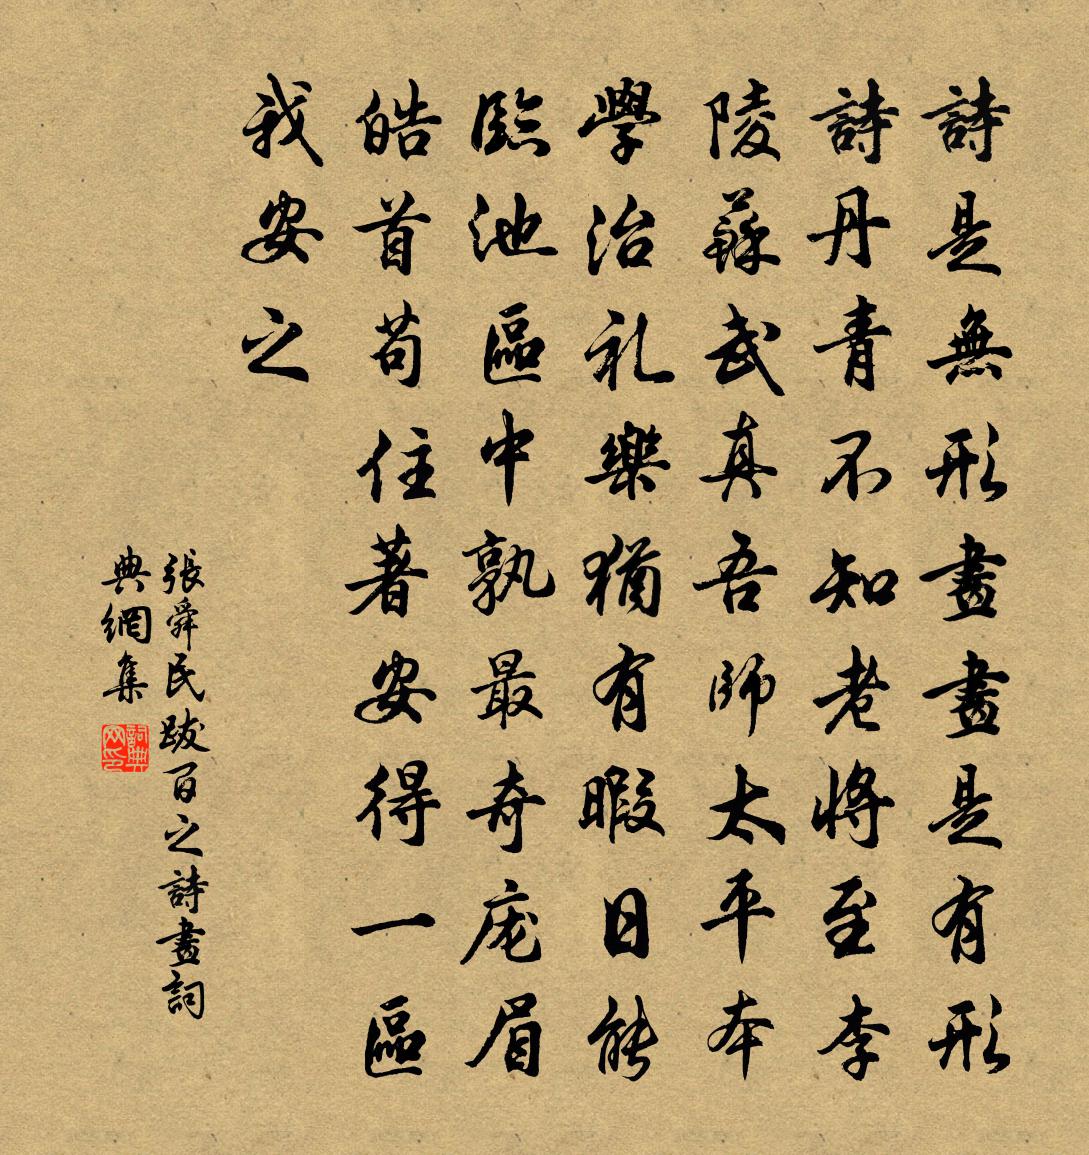 詩是無形畫畫是有形
詩丹青不知老將至李
陵蘇武真吾師太平本
學治礼樂猶有暇日能
臨池區中孰最奇庬眉
皓首苟住著安得一區
我安之
張舜民跋百之詩畫詞
典網集
詞典网印